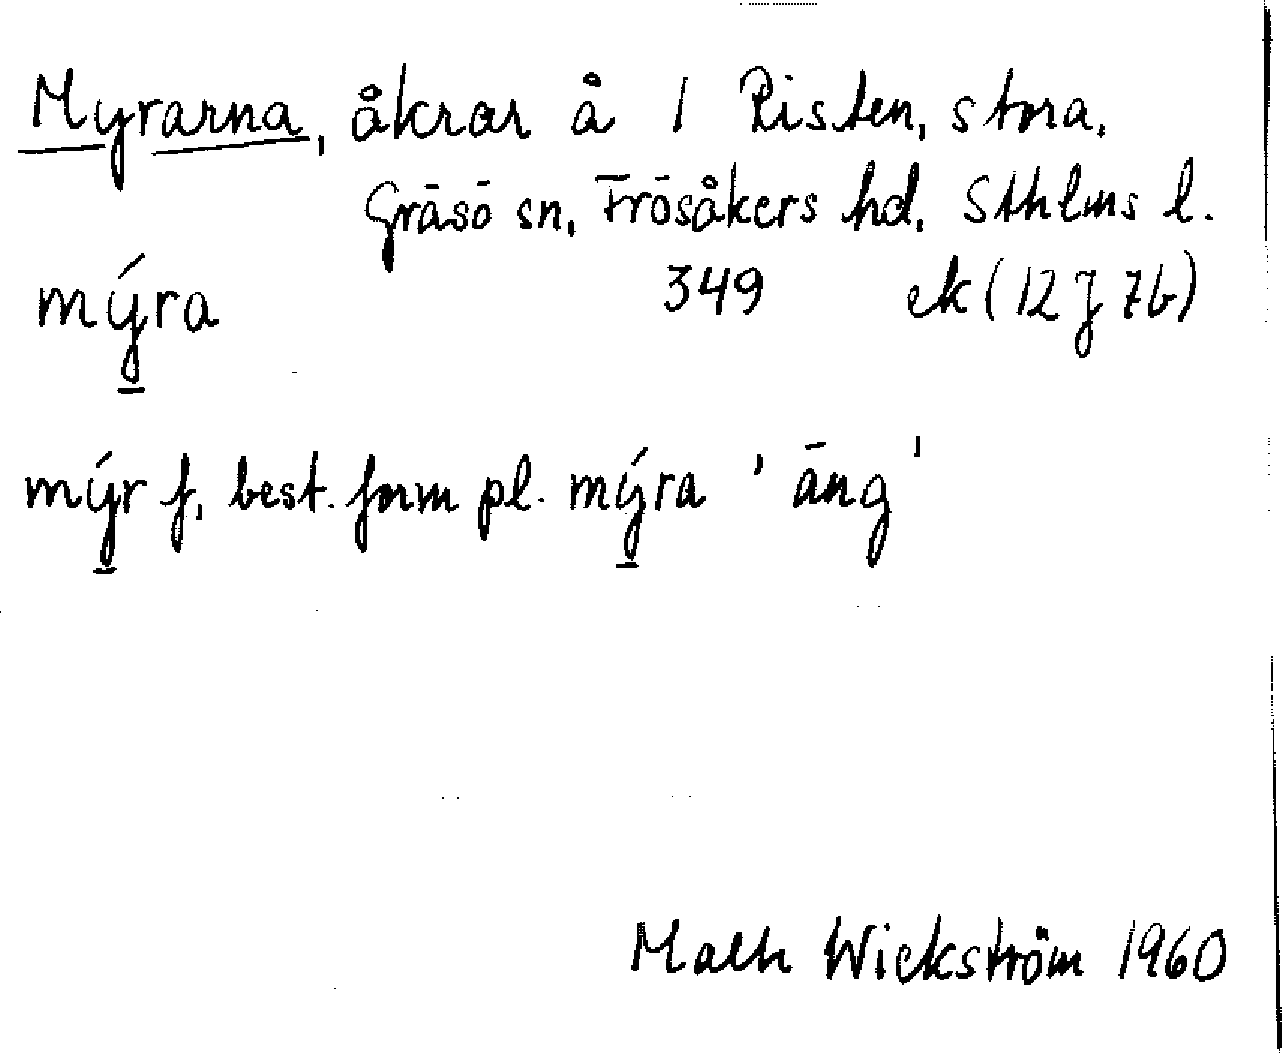 Myrarna, åkrar å 1 Risten, stora,
Gräsö sn, Frösåkers hd, Sthlms l.
mýra 349 ek (12 J 7b)
mýr f, best. form pl. mýra 'äng'
Math Wickström 1960